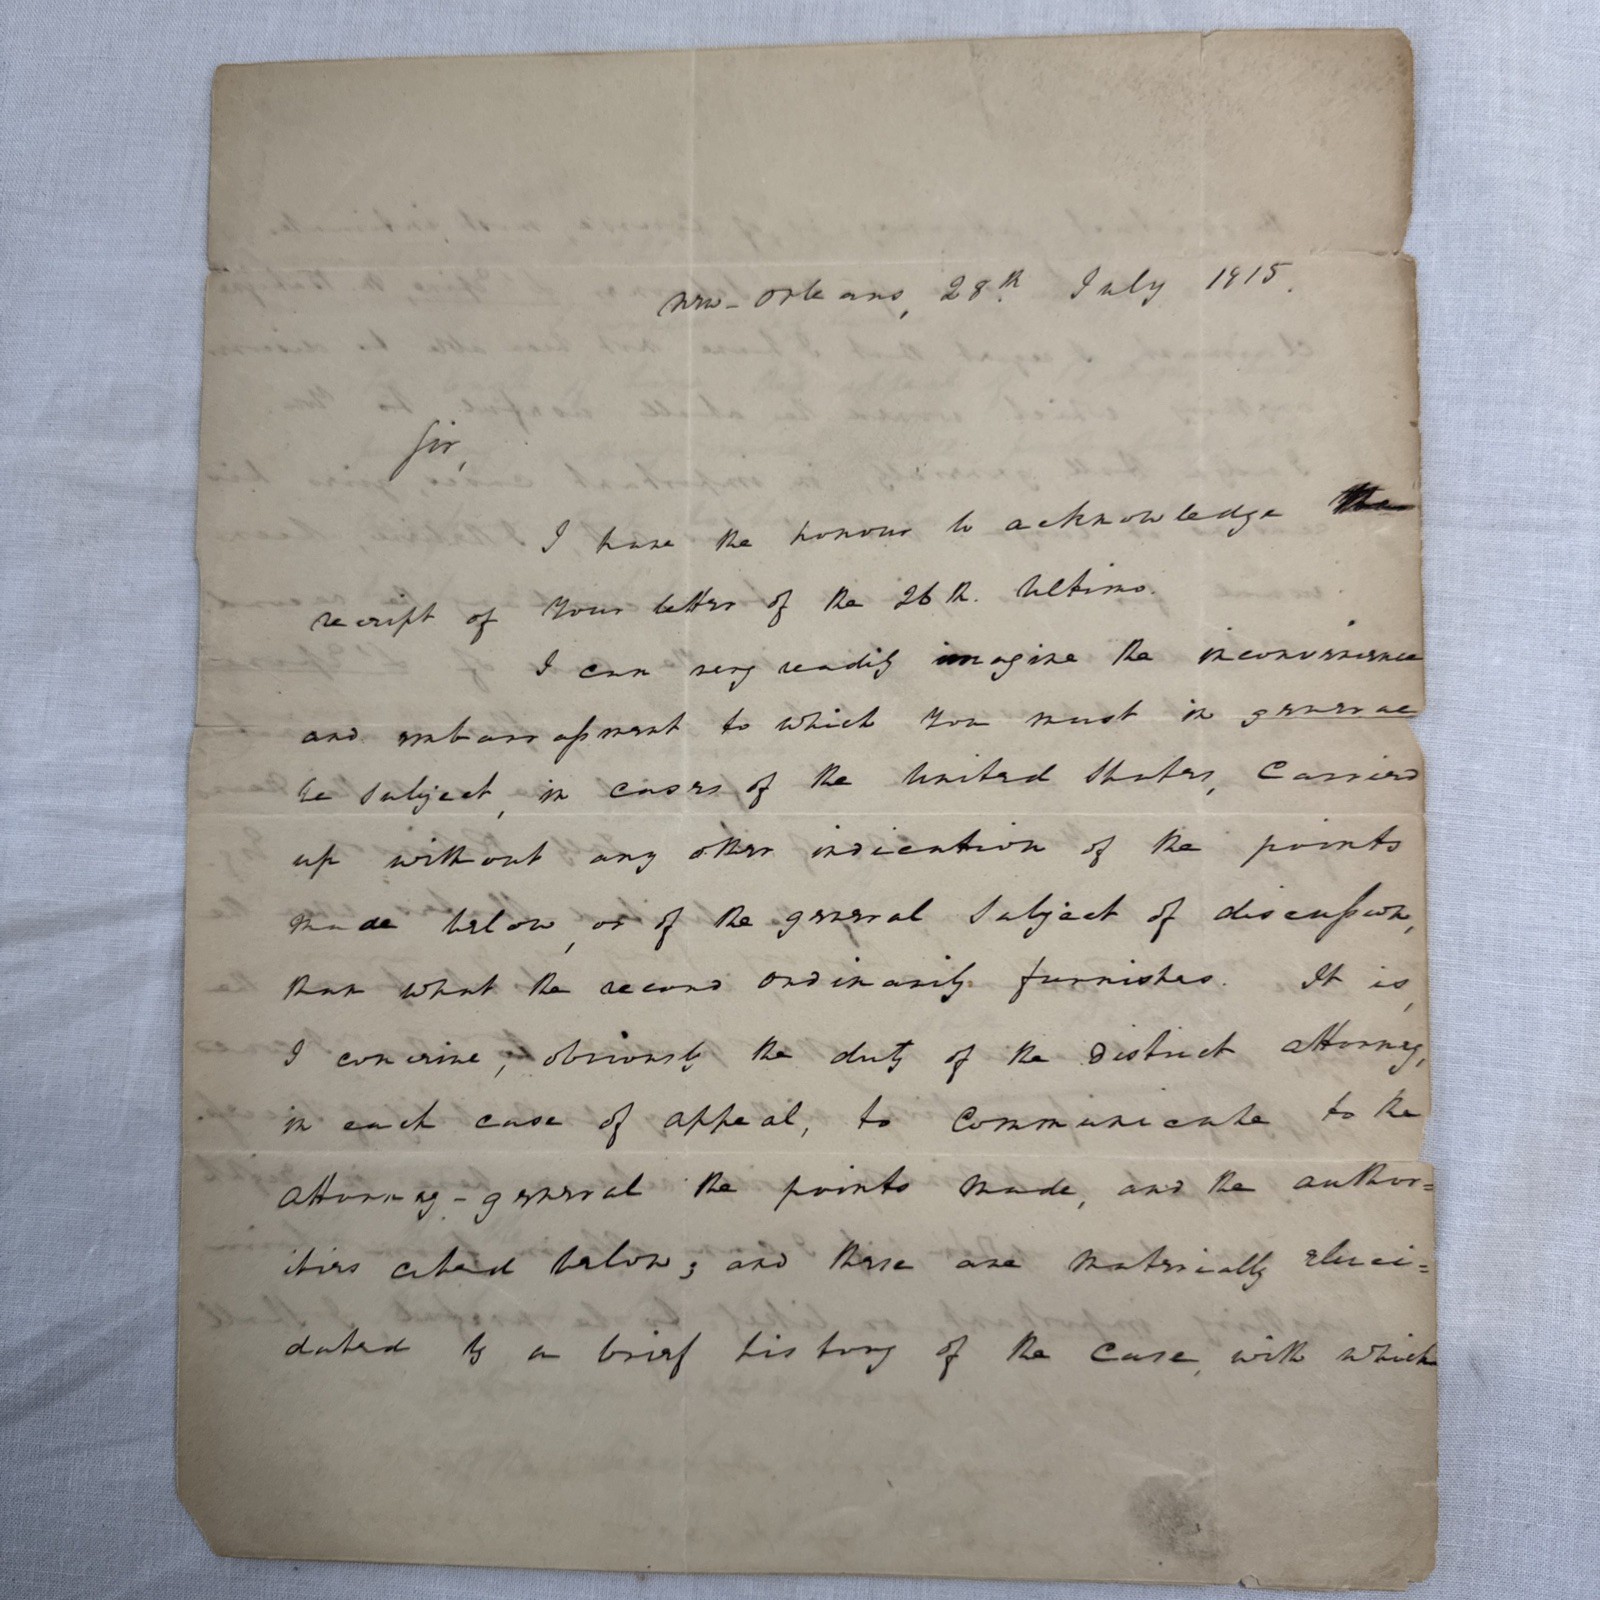 New-Orleans, 28th July 1815.
Sir,
I have the honour to acknowledge the
receipt of Your letter of the 26th. Ultimo.
I can very readily imagine the inconvenience
and embarrassment to which You must in general
be subject, in cases of the United States, carried
up without any other indication of the points
made below, or of the general subject of discussion,
than what the record ordinarily furnishes. It is,
I conceive, obviously the duty of the District Attorney,
in each case of appeal, to communicate to the
Attorney-general the points made, and the author=
ities cited below; and these are materially eluci=
dated by a brief history of the case, with which